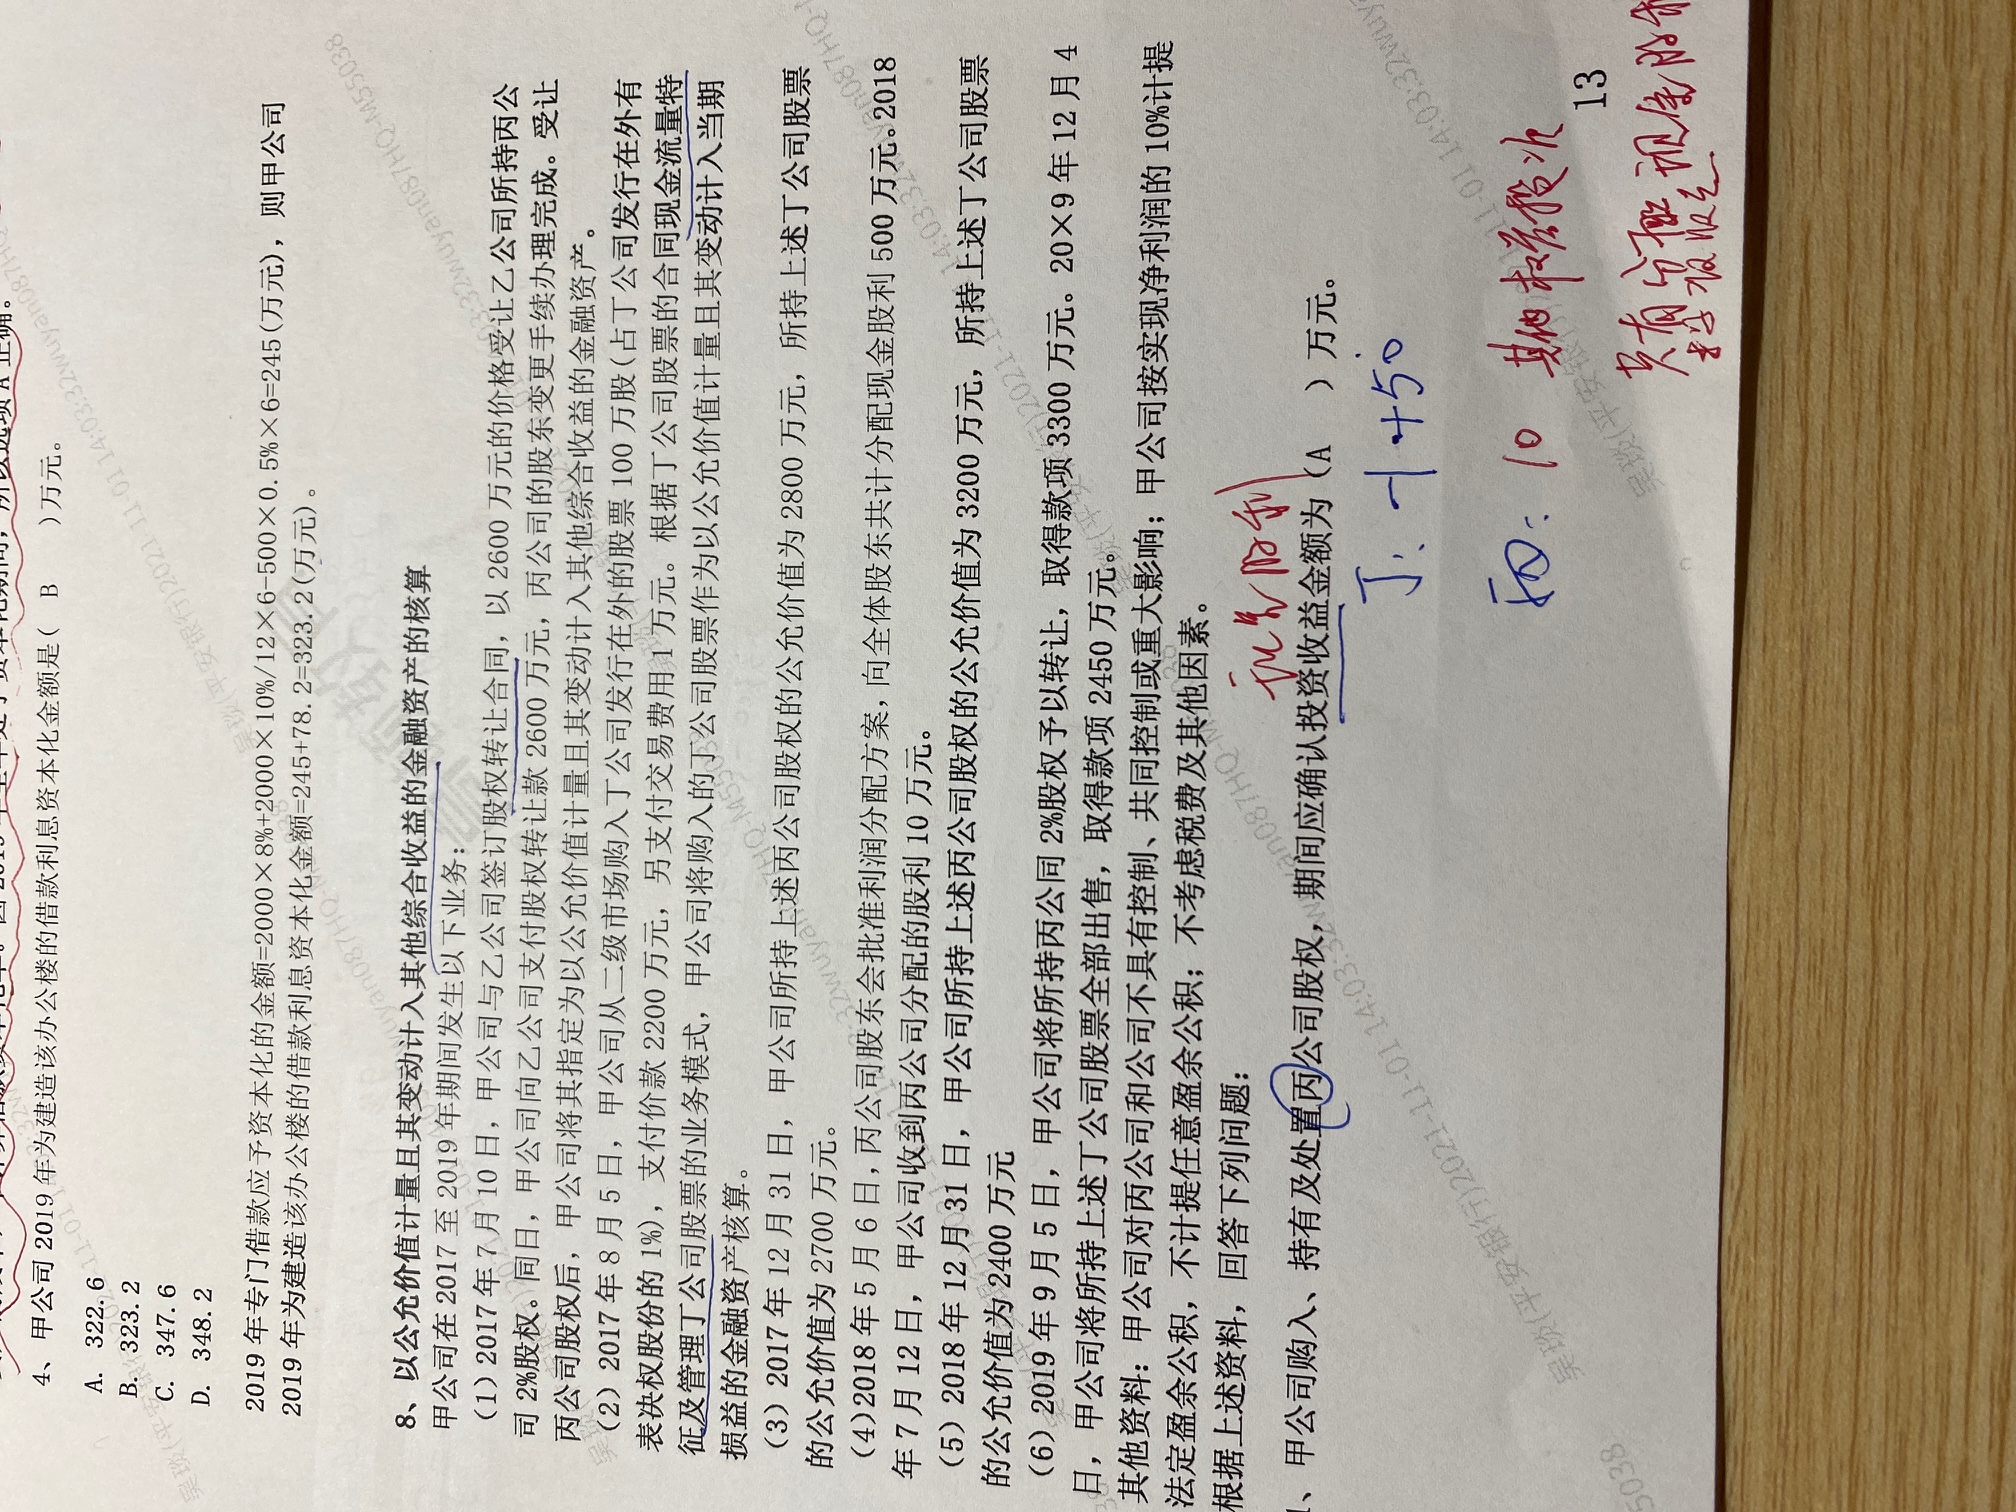 4、甲公司2019年为建造该办公楼的借款利息资本化金额是( B )万元。
A. 322.6
B. 323.2
C. 347.6
D. 348.2
2019年专门借款应予资本化的金额=2000×8%+2000×10%/12×6-500×0.5%×6=245(万元)，则甲公司
2019年为建造该办公楼的借款利息资本化金额=245+78.2=323.2(万元)。
8、以公允价值计量且其变动计入其他综合收益的金融资产的核算
甲公司在2017至2019年期间发生以下业务：
(1)2017年7月10日，甲公司与乙公司签订股权转让合同，以2600万元的价格受让乙公司所持丙公
司2%股权。同日，甲公司向乙公司支付股权转让款2600万元，丙公司的股东变更手续办理完成。受让
丙公司股权后，甲公司将其指定为以公允价值计量且其变动计入其他综合收益的金融资产。
(2)2017年8月5日，甲公司从二级市场购入丁公司发行在外的股票100万股(占丁公司发行在外有
表决权股份的1%)，支付价款2200万元，另支付交易费用1万元。根据丁公司股票的合同现金流量特
征及管理丁公司股票的业务模式，甲公司将购入的丁公司股票作为以公允价值计量且其变动计入当期
损益的金融资产核算。
(3)2017年12月31日，甲公司所持上述丙公司股权的公允价值为2800万元，所持上述丁公司股票
的公允价值为2700万元。
(4)2018年5月6日，丙公司股东会批准利润分配方案，向全体股东共计分配现金股利500万元。2018
年7月12日，甲公司收到丙公司分配的股利10万元。
(5)2018年12月31日，甲公司所持上述丙公司股权的公允价值为3200万元，所持上述丁公司股票
的公允价值为2400万元
(6)2019年9月5日，甲公司将所持丙公同2%股权予以转让，取得款项3300万元。20×9年12月4
日，甲公司将所持上述丁公司股票全部出售，取得款项2450万元。
其他资料：甲公司对丙公司和公司不具有控制、共同控制或重大影响；甲公司按实现净利润的10%计提
法定盈余公积，不计提任意盈余公积；不考虑税费及其他因素。
根据上述资料，回答下列问题：
现金股利
1、甲公司购入、持有及处置丙公司股权，期间应确认投资收益金额为（A ）万元。
丁：-1+50
丙：10 其他权益投资
只有分配现金股利
13